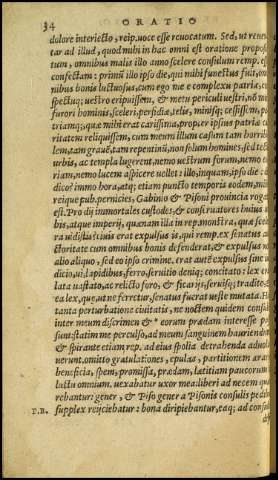 34 ORATIO
dolore interiecto, reip. noce esse renouatum. Sed, ut reuer
tar ad illud, quod mihi in hac omni est oratione propos
tum, omnibus malis illo anno scelere consulum remp. es
confectam: primū illo ipso die, qui mihi funestus fuit, om
nibus bonis luctuosus, cum ego me e complexu patriæ, co
spectuq; uestro eripuissem, & metu periculi uestri, nō me
furori hominis, sceleri, perfidiæ, telis, minisq; cessissem, pa
triamq; quæ mihi erat carissima, propter ipsius patriæ ca
ritatem reliquissem, cum meum illum casum tam horribi
lem, tam grauē, tam repentinū, non solum homines, sed te
urbis, ac templa lugerent, nemo uestrum forum, nemo
riam, nemo lucem aspicere uellet: illo, inquam, ipso die
dico? immo hora, atq; etiam puncto temporis eodem, mihi
reique pub. pernicies, Gabinio & Pisoni prouincia roga
est. Pro dij immortales custodes, & conseruatores huius
bis, atque imperij, quænam illa in rep. monstra, quæ scele
ra uidistis? ciuis erat expulsus is, qui remp. ex senatus
ctoritate cum omnibus bonis defenderat, & expulsus no
alio aliquo, sed eo ipso crimine. erat autē expulsus sine iu
dicio, ui, lapidibus, ferro, seruitio deniq; concitato: lex
lata uastato, ac relicto foro, & sicarijs, seruisq; tradito,
ea lex, quæ ut ne ferretur, senatus fuerat ueste mutata. H
tanta perturbatione ciuitatis, ne noctem quidem consu
inter meum discrimen & * eoram prædam interesse p
sunt. statim me perculso, ad meum sanguinem hauriendū
& spirante etiam rep. ad eius spolia detrahenda aduol
uerunt. omitto gratulationes, epulas, partitionem ærar
beneficia, spem, promissa, prædam, lætitiam paucorum
luctu omnium. uexabatur uxor mea: liberi ad necem qu
rebantur: gener, & Piso gener a Pisonis consulis pedib
P.B. supplex reijciebatur: bona diripiebantur, eaq; ad consu